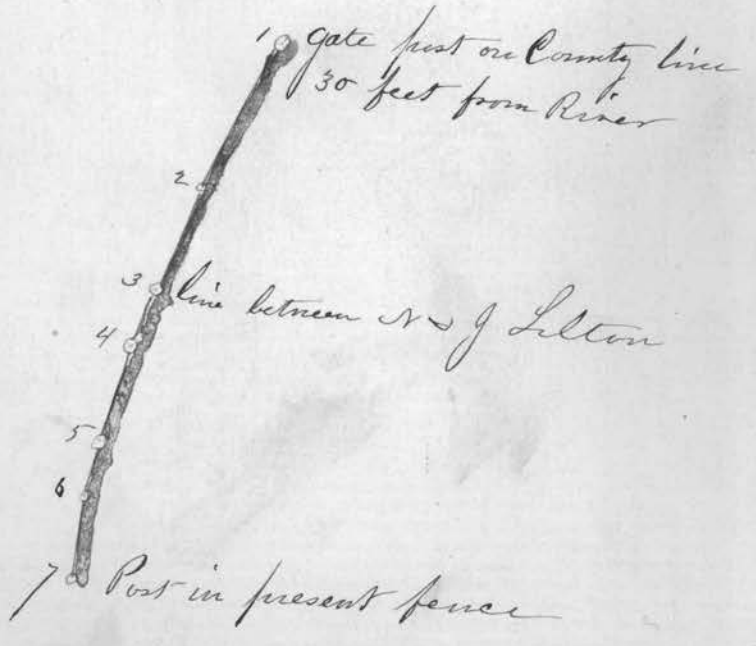 1 gate post on County line
30 feet from River
2
3 line between N & J Lilton
4
5
6
7 Post in present fence